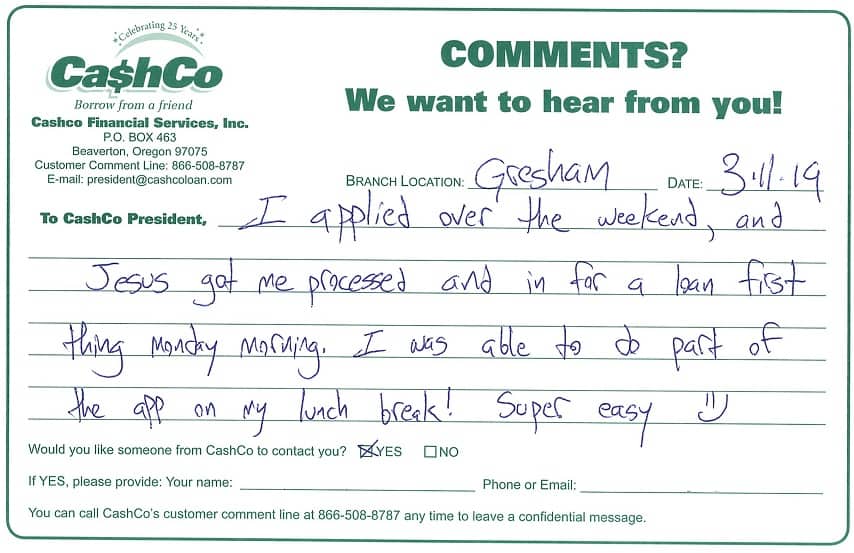 Celebrating 25 Years
Ca$hCo
Borrow from a friend
Cashco Financial Services, Inc.
P.O. BOX 463
Beaverton, Oregon 97075
Customer Comment Line: 866-508-8787
E-mail: president@cashcoloan.com
COMMENTS?
We want to hear from you!
BRANCH LOCATION: Gresham DATE: 3.11.19
To CashCo President, I applied over the weekend, and
Jesus got me processed and in for a loan first
thing Monday morning. I was able to do part of
the app on my lunch break! Super easy :)
Would you like someone from CashCo to contact you? ☒YES ☐NO
If YES, please provide: Your name: Phone or Email:
You can call CashCo's customer comment line at 866-508-8787 any time to leave a confidential message.